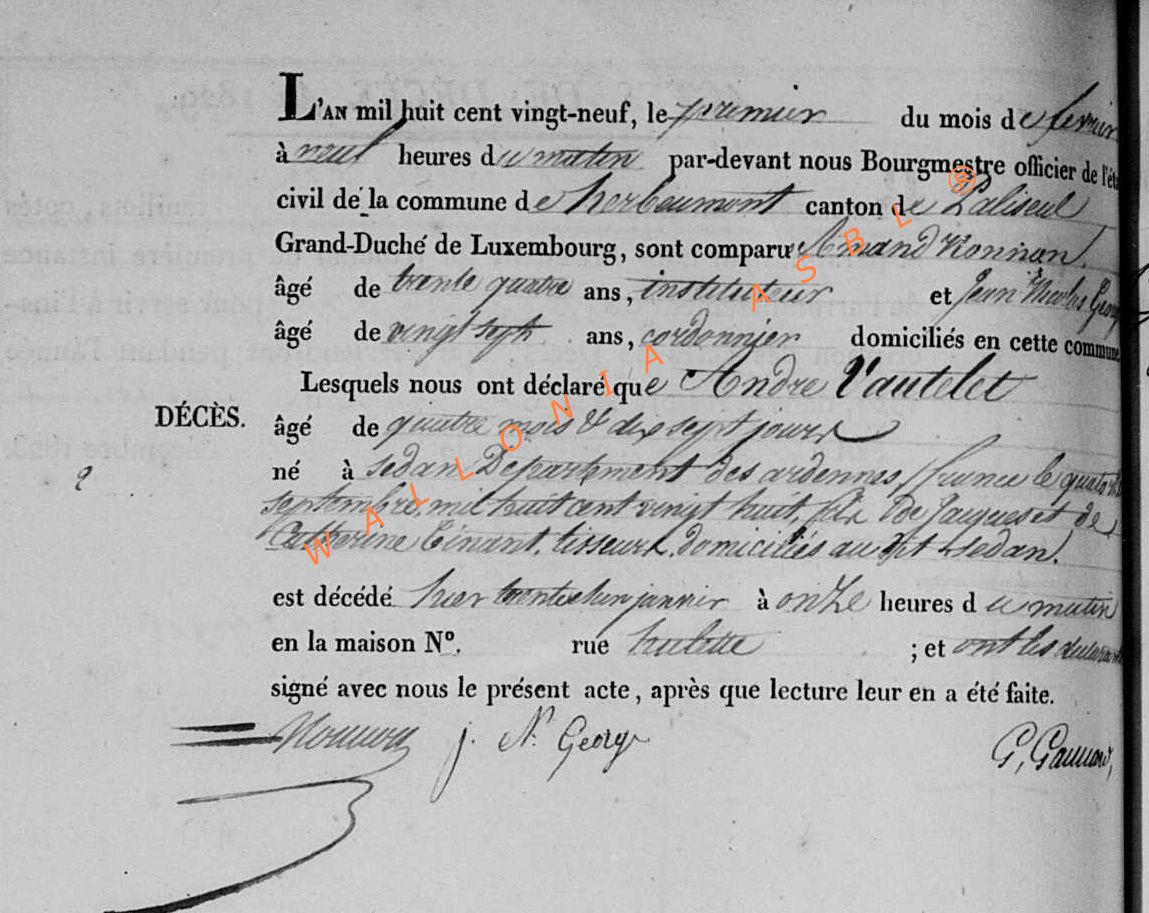 L'AN mil huit cent vingt-neuf, le premier du mois de fevrier
à neuf heures du matin par-devant nous Bourgmestre officier de l'éta
civil de la commune de herbeumont canton de Paliseul
Grand-Duché de Luxembourg, sont comparu Amand
âgé de trente quatre ans, instituteur et Jean Nicolas Georg
âgé de vingt sept ans, cordonnier domiciliés en cette commune
Lesquels nous ont déclaré que Andre Vautelet
DÉCÈS.
âgé de quatre mois & dix sept jours
né à Sedan Departement des ardennes, france le quatorze
septembre, mil huit cent vingt huit, fils de Jacques et de
Catherine Tinant, tisseurs, domiciliés au dit Sedan.
2
est décédé hier trente un janvier à onze heures du matin
en la maison N°. rue hulette ; et ont les declarants
signé avec nous le présent acte, après que lecture leur en a été faite.
j. N. George G,
WALLONIA ASBL ®